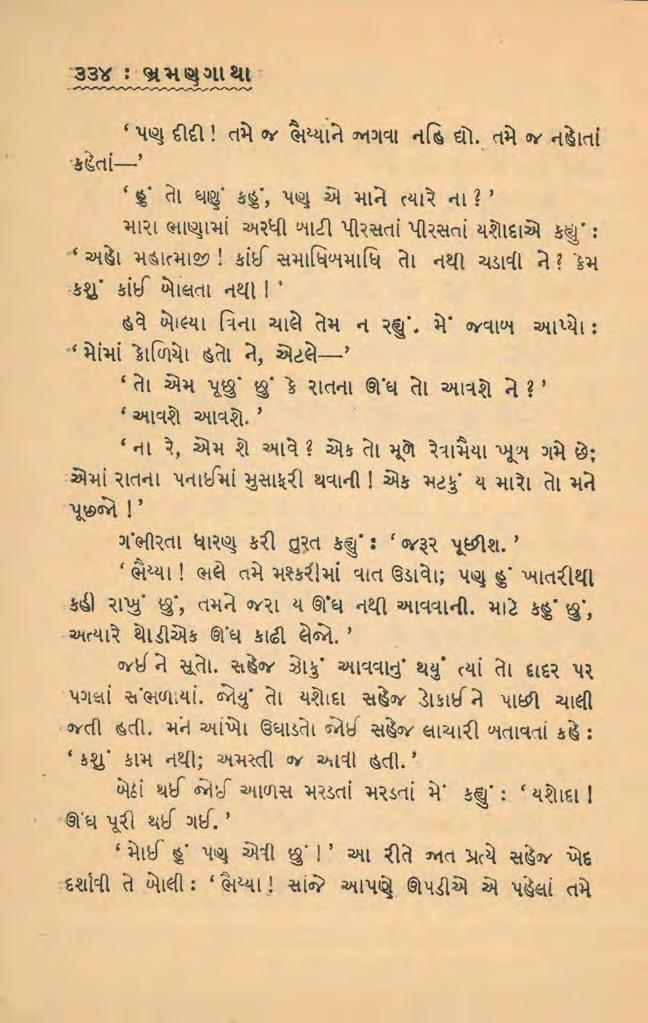 ૩૩૪ : ભ્રમણગાથા
‘ પણ દીદી! તમે જ ભૈય્યાને જાગવા નહિ દ્યો. તમે જ નહોતાં
કહેતાં—’
‘ હું તો ઘણું કહું, પણ એ માને ત્યારે ના ? ’
મારા ભાણામાં અરધી બાટી પીરસતાં પીરસતાં યશોદાએ કહ્યું :
‘ અહો મહાત્માજી ! કાંઈ સમાધિબમાધિ તો નથી ચડાવી ને? કેમ
કશું કાંઈ બોલતા નથી ! ’
હવે બોલ્યા વિના ચાલે તેમ ન રહ્યું. મેં જવાબ આપ્યો :
‘ મોંમાં કોળિયો હતો ને, એટલે—’
‘ તો એમ પૂછું છું કે રાતના ઊંઘ તો આવશે ને ? ’
‘ આવશે આવશે. ’
‘ ના રે, એમ શે આવે ? એક તો મૂળે રેવામૈયા ખૂબ ગમે છે;
એમાં રાતના પનાઈમાં મુસાફરી થવાની ! એક મટકું ય મારો તો મને
પૂછજો ! ’
ગંભીરતા ધારણ કરી તુરત કહ્યું : ‘ જરૂર પૂછીશ. ’
‘ ભૈય્યા ! ભલે તમે મશ્કરીમાં વાત ઉડાવો; પણ હું ખાતરીથી
કહી રાખું છું, તમને જરા ય ઊંઘ નથી આવવાની. માટે કહું છું,
અત્યારે થોડીએક ઊંઘ કાઢી લેજો. ’
જઈ ને સૂતો. સહેજ ઝોકું આવવાનું થયું ત્યાં તો દાદર પર
પગલાં સંભળાયાં. જોયું તો યશોદા સહેજ ડોકાઈ ને પાછી ચાલી
જતી હતી. મને આંખો ઉઘાડતો જોઈ સહેજ લાચારી બતાવતાં કહે :
‘ કશું કામ નથી; અમસ્તી જ આવી હતી. ’
બેઠાં થઈ જોઈ આળસ મરડતાં મરડતાં મેં કહ્યું : ‘ યશોદા !
ઊંઘ પૂરી થઈ ગઈ. ’
‘ મોઈ હું પણ એવી છું ! ’ આ રીતે જાત પ્રત્યે સહેજ ખેદ
દર્શાવી તે બોલી : ‘ ભૈય્યા ! સાંજે આપણે ઊપડીએ એ પહેલાં તમે